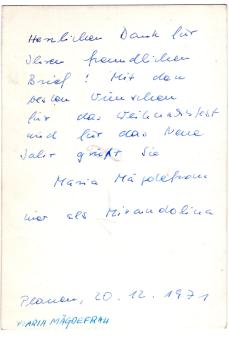 Herzlichen Dank für
Ihren freundlichen
Brief! Mit den
besten Wünschen
für das Weihnachtsfest
und für das Neue
Jahr grüßt Sie
Maria Mägdefrau
hier als Mirandolina
Plauen, 20.12.1971
MARIA MÄGDEFRAU